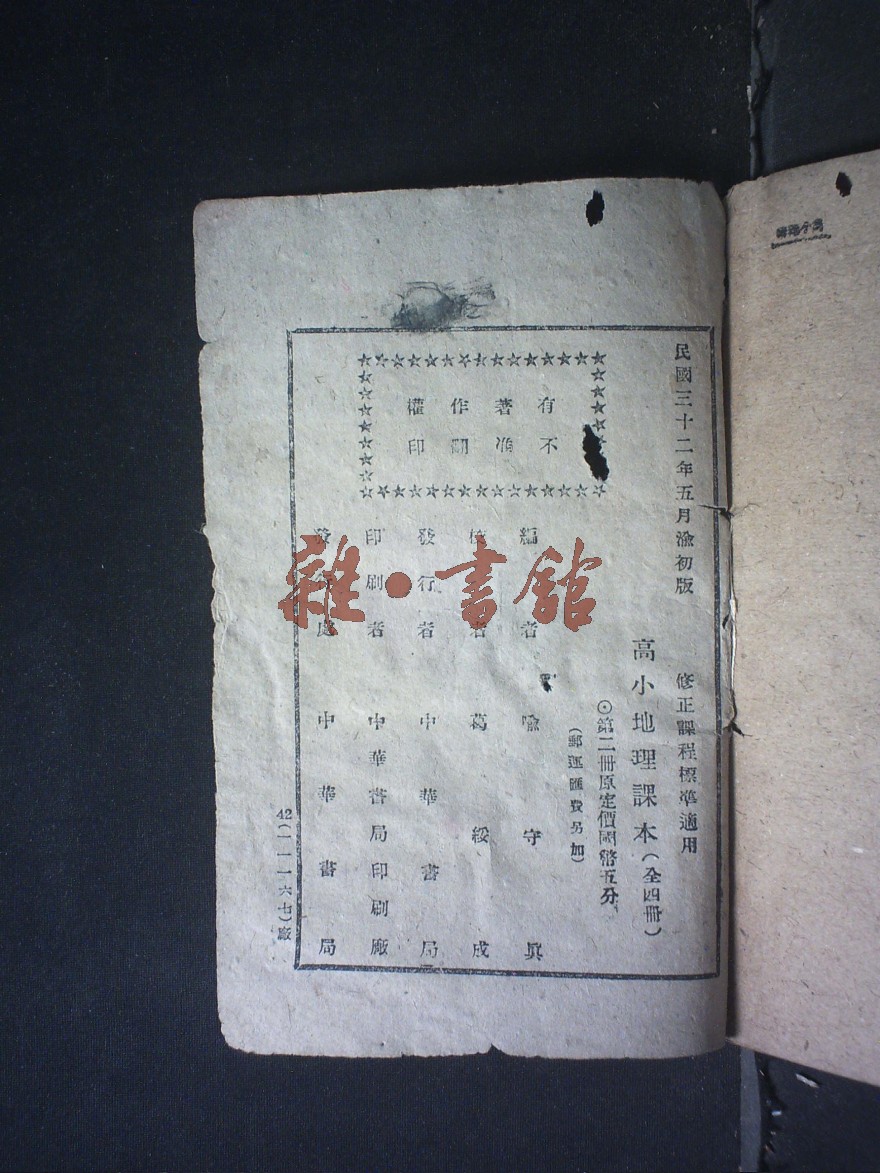 民國三十二年五月渝初版
修正課程標準適用
高小地理課本(全四冊)
⊙第二冊原定價國幣五分
(郵運匯費另加)
有著作權
不准翻印
編者 喻守真
校者 葛綏成
發行者 中華書局
印刷者 中華書局印刷廠
發行處 中華書局
42(一一一六七)廠
雜·書館